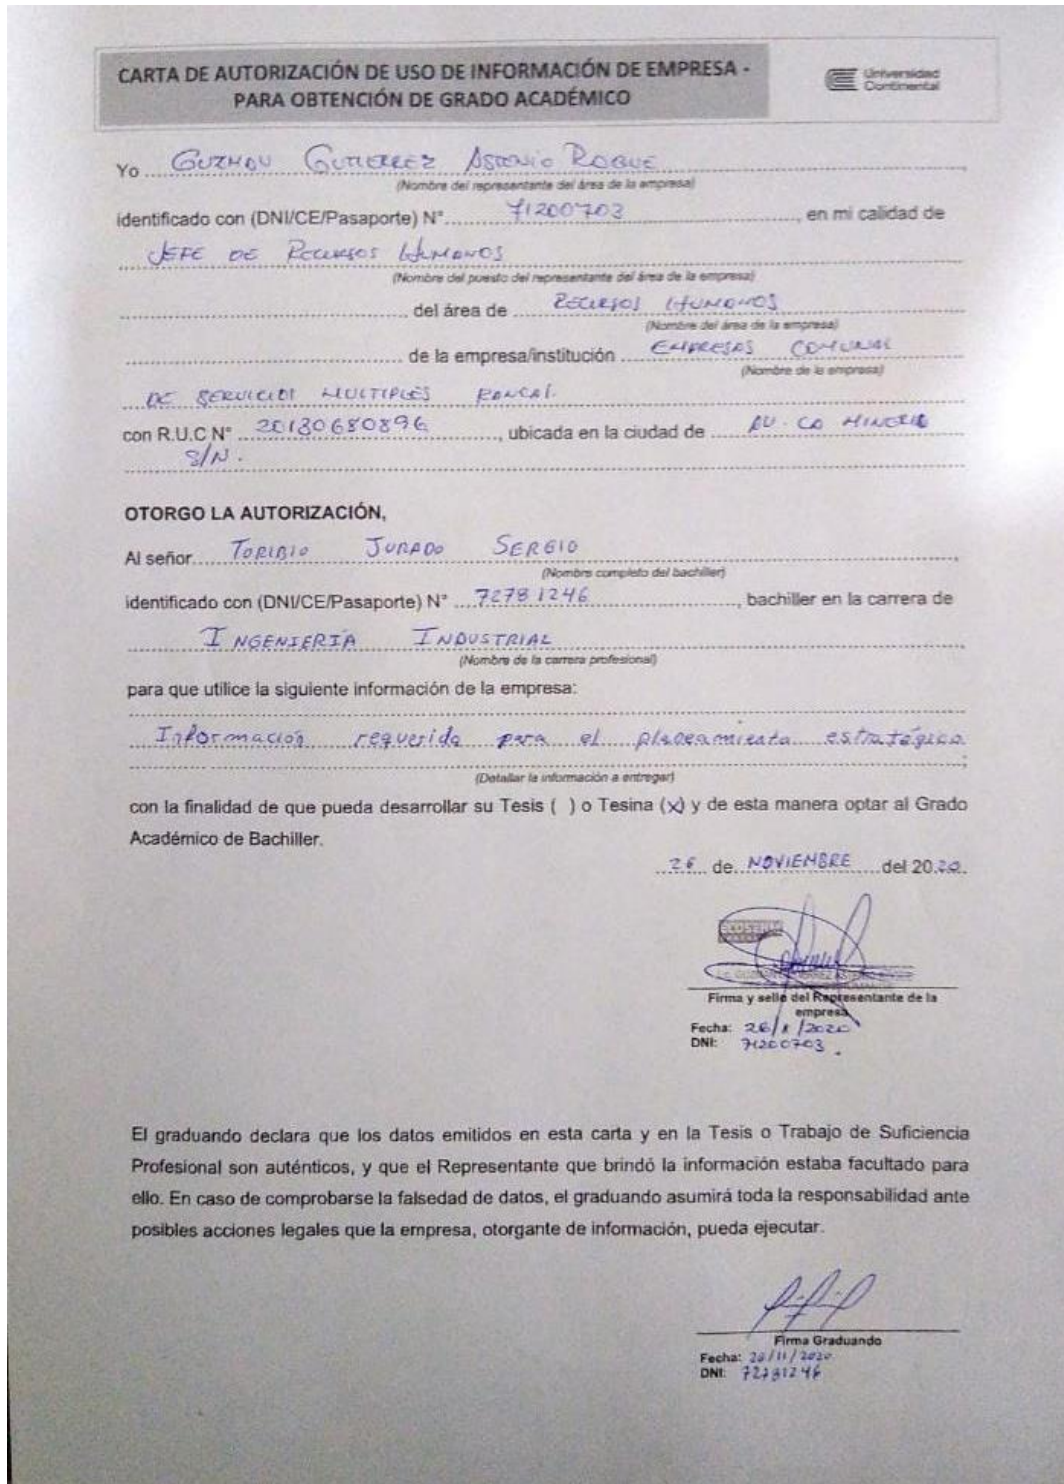 CARTA DE AUTORIZACIÓN DE USO DE INFORMACIÓN DE EMPRESA -
PARA OBTENCIÓN DE GRADO ACADÉMICO
Universidad
Continental
Yo GUZMAN GUTIERREZ ROQUE
(Nombre del representante del área de la empresa)
identificado con (DNI/CE/Pasaporte) N° 71200703, en mi calidad de
JEFE DE RECURSOS HUMANOS
(Nombre del puesto del representante del área de la empresa)
del área de RECURSOS HUMANOS
(Nombre del área de la empresa)
de la empresa/institución EMPRESAS COMUNAL
(Nombre de la empresa)
DE SERVICIOS MULTIPLES RANCAS.
con R.U.C N° 20130680896, ubicada en la ciudad de AV. LA MINERIA
S/N.
OTORGO LA AUTORIZACIÓN,
Al señor TORIBIO JURADO SERGIO
(Nombre completo del bachiller)
identificado con (DNI/CE/Pasaporte) N° 72781246, bachiller en la carrera de
INGENIERÍA INDUSTRIAL
(Nombre de la carrera profesional)
para que utilice la siguiente información de la empresa:
Información requerida para el planeamiento estratégico
(Detallar la información a entregar)
con la finalidad de que pueda desarrollar su Tesis ( ) o Tesina (x) y de esta manera optar al Grado
Académico de Bachiller.
26 de NOVIEMBRE del 2020.
Firma y sello del Representante de la
empresa
Fecha: 26/ /2020
DNI: 71200703
El graduando declara que los datos emitidos en esta carta y en la Tesis o Trabajo de Suficiencia
Profesional son auténticos, y que el Representante que brindó la información estaba facultado para
ello. En caso de comprobarse la falsedad de datos, el graduando asumirá toda la responsabilidad ante
posibles acciones legales que la empresa, otorgante de información, pueda ejecutar.
Firma Graduando
Fecha: 26/11/2020
DNI: 72781246